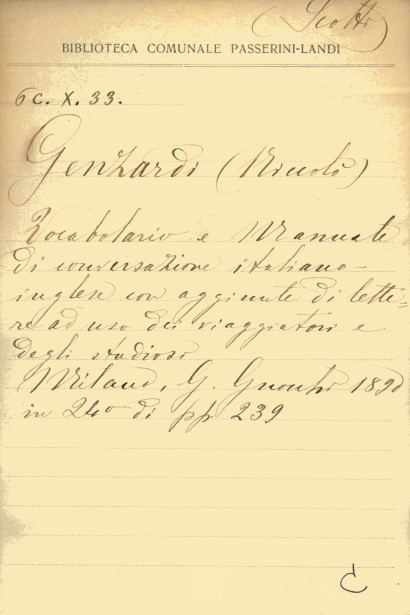 (Scotti)
BIBLIOTECA COMUNALE PASSERINI-LANDI
6C. X. 33.
Genzardi (Niccolò)
Vocabolario e Manuale
di conversazione italiano-
inglese con aggiunte di lette-
re ad uso dei viaggiatori e
degli studiosi
Milano, G. 1890
in 24o di pp 239
C